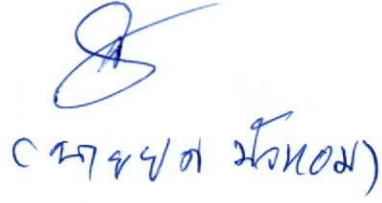 (นายยศ บัวหอม)